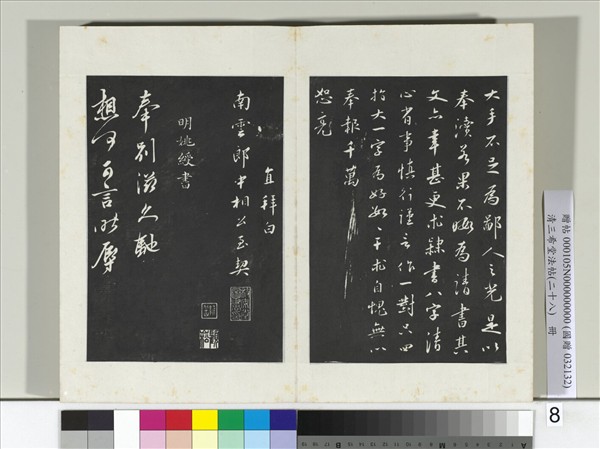 大手不足為鄙人之光是以
奉瀆若果不眵為請書其
文六章甚更求隸書八字清
心省事慎行謹言作一對只四
指大一字為好如
奉報千萬
恕亮
直拜白
南雲郎中相公至契
明姚綬書
奉別滋久馳
想何可言所辱
贈帖 000105N000000000 (國贈 032132)
清三希堂法帖(二十八) 冊
8